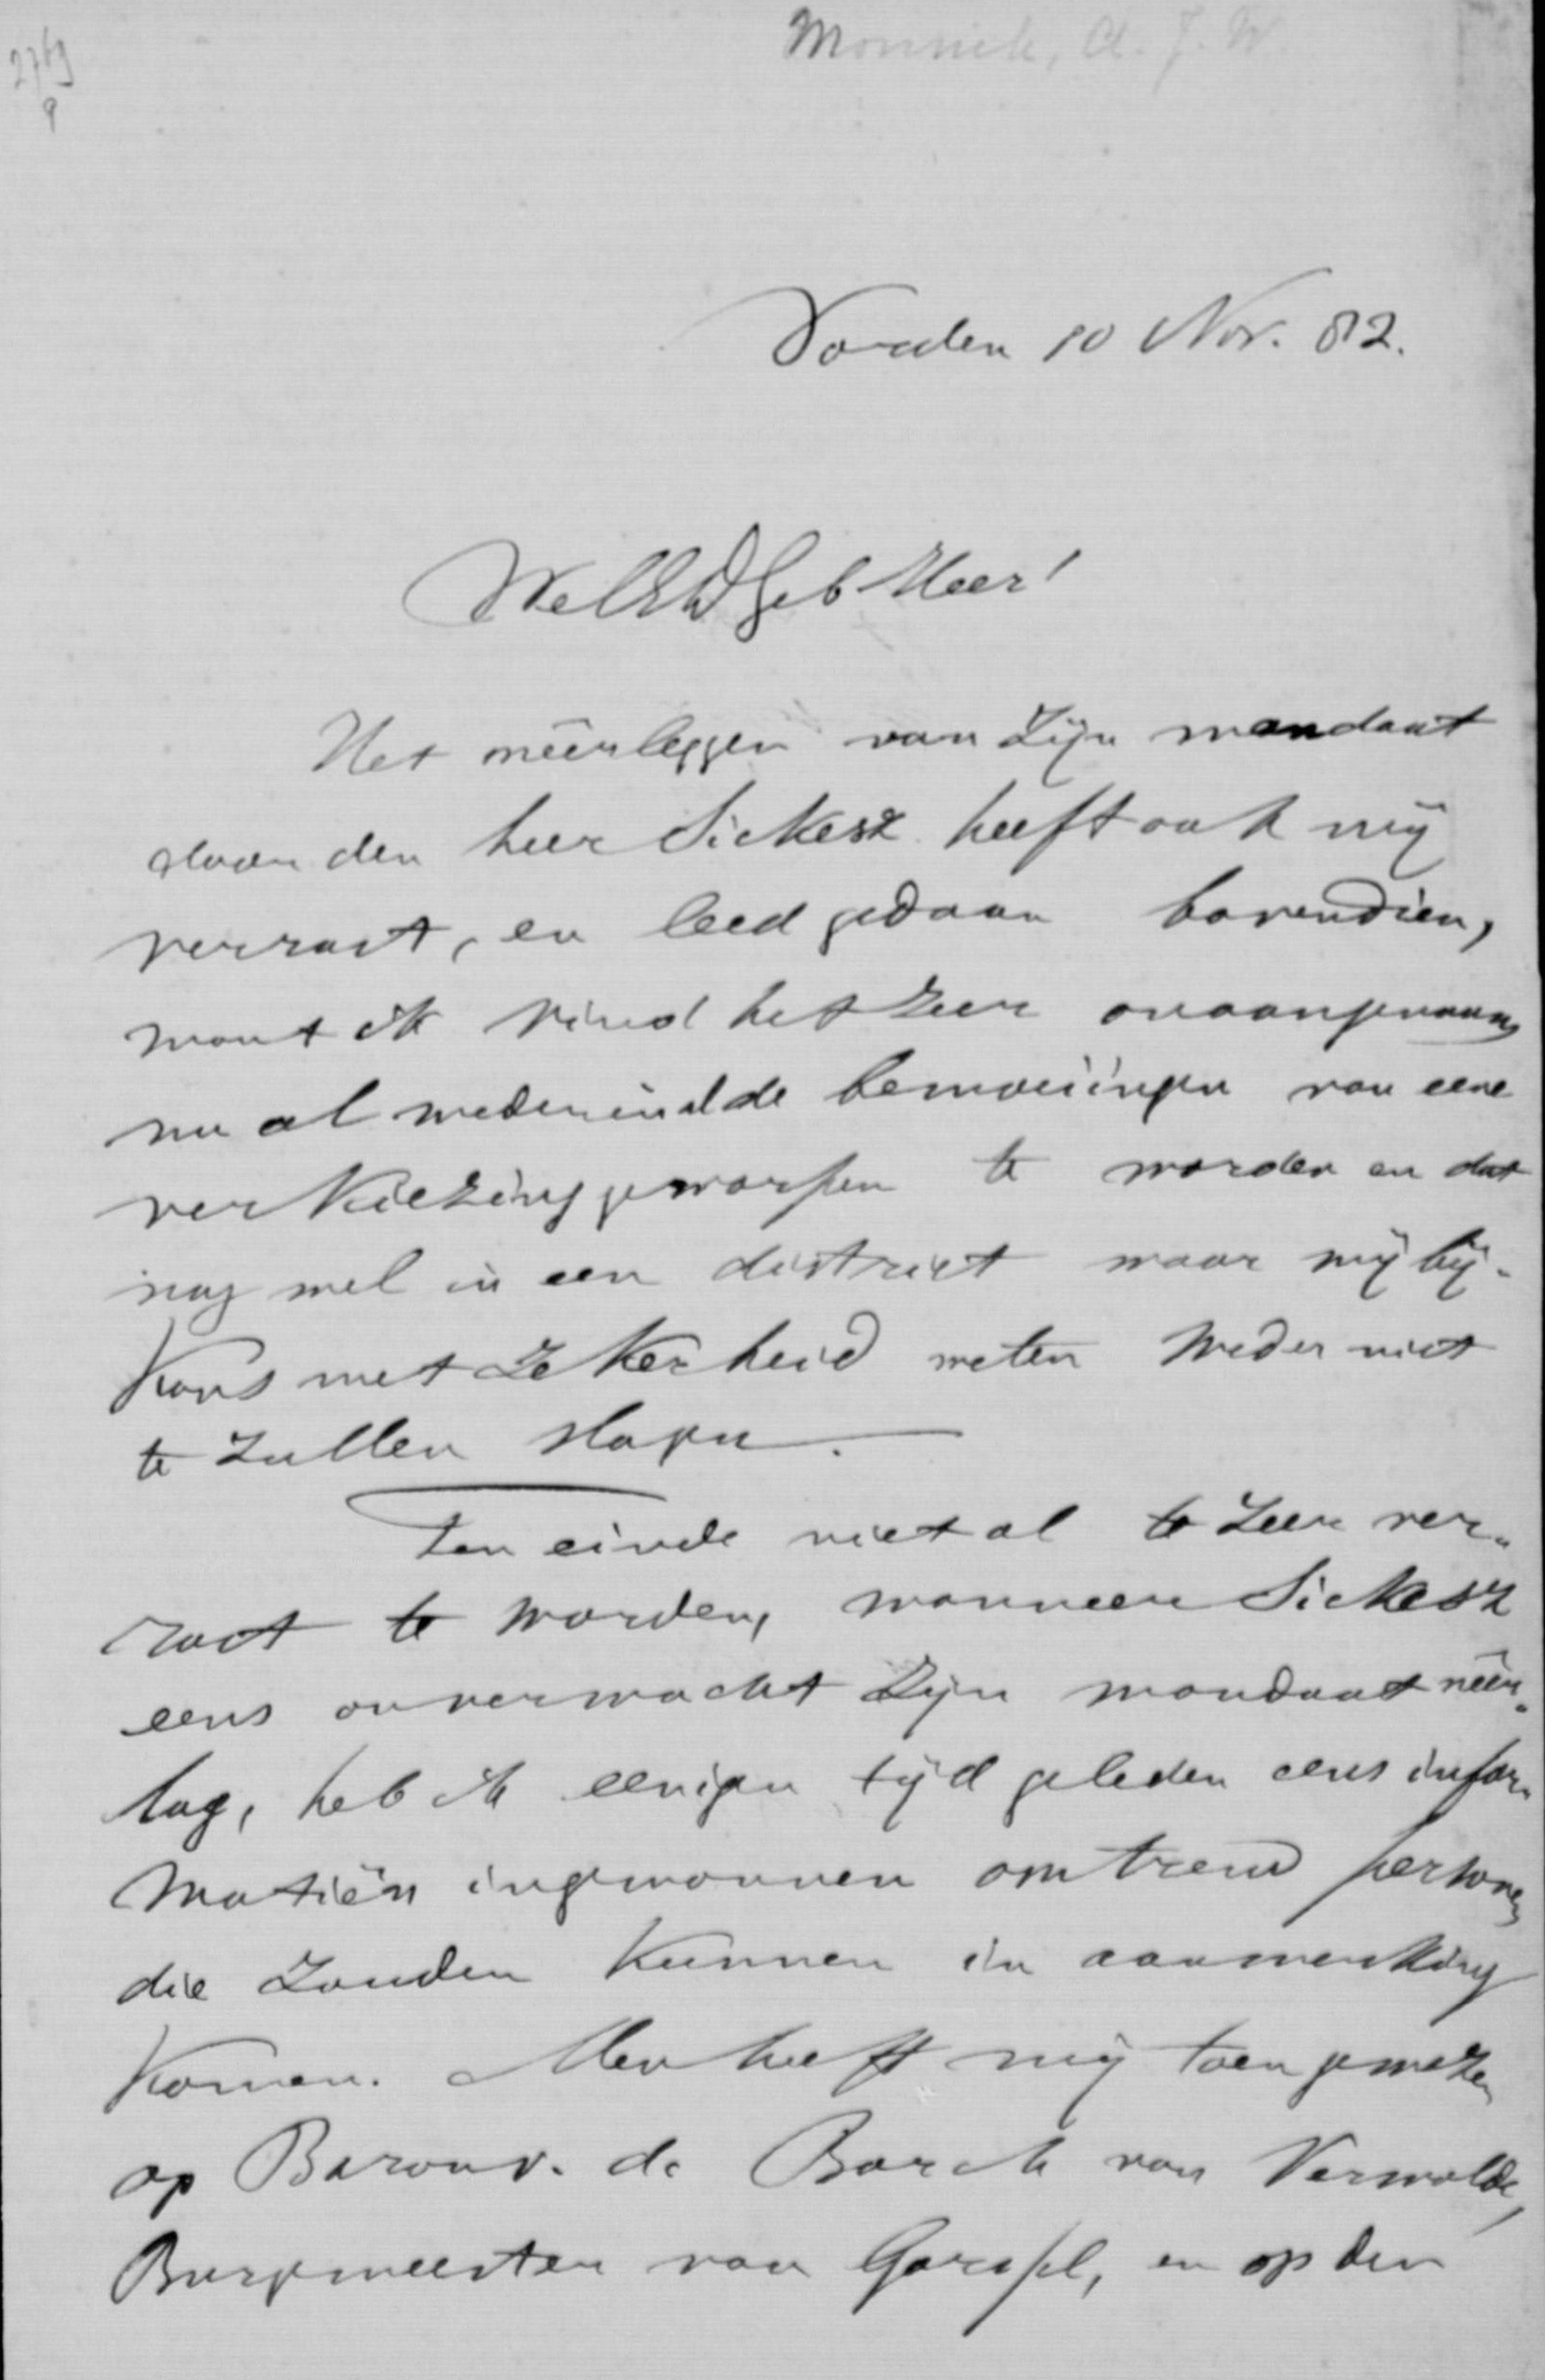 Monnik, A. J. W
2769
9
Vorden 10 Nov. 82.
WelEdGeb Heer!
Het neêrleggen van zijn mandaat
door den heer Sickesz heeft ook mij
verrast, en leed gedaan bovendien,
want ik vind het zeer onaangenaam
nu al weder in al de bemoeiingen van eene
verkiezing geworpen te worden en dat
nog wel in een district waar wij bij-
kans met zekerheid weten weder niet
te zullen slagen.
Ten einde niet al te zeer ver-
rast te worden, wanneer Sickesz
eens onverwacht zijn mandaat neêr-
lag, heb ik eenigen tijd geleden eens infor-
matiën ingewonnen omtrend personen
die zouden kunnen in aanmerking
komen. Men heeft mij toen gewezen
op Baron v. de Borch van Verwolde,
Burgemeester van Gorssel, en op den